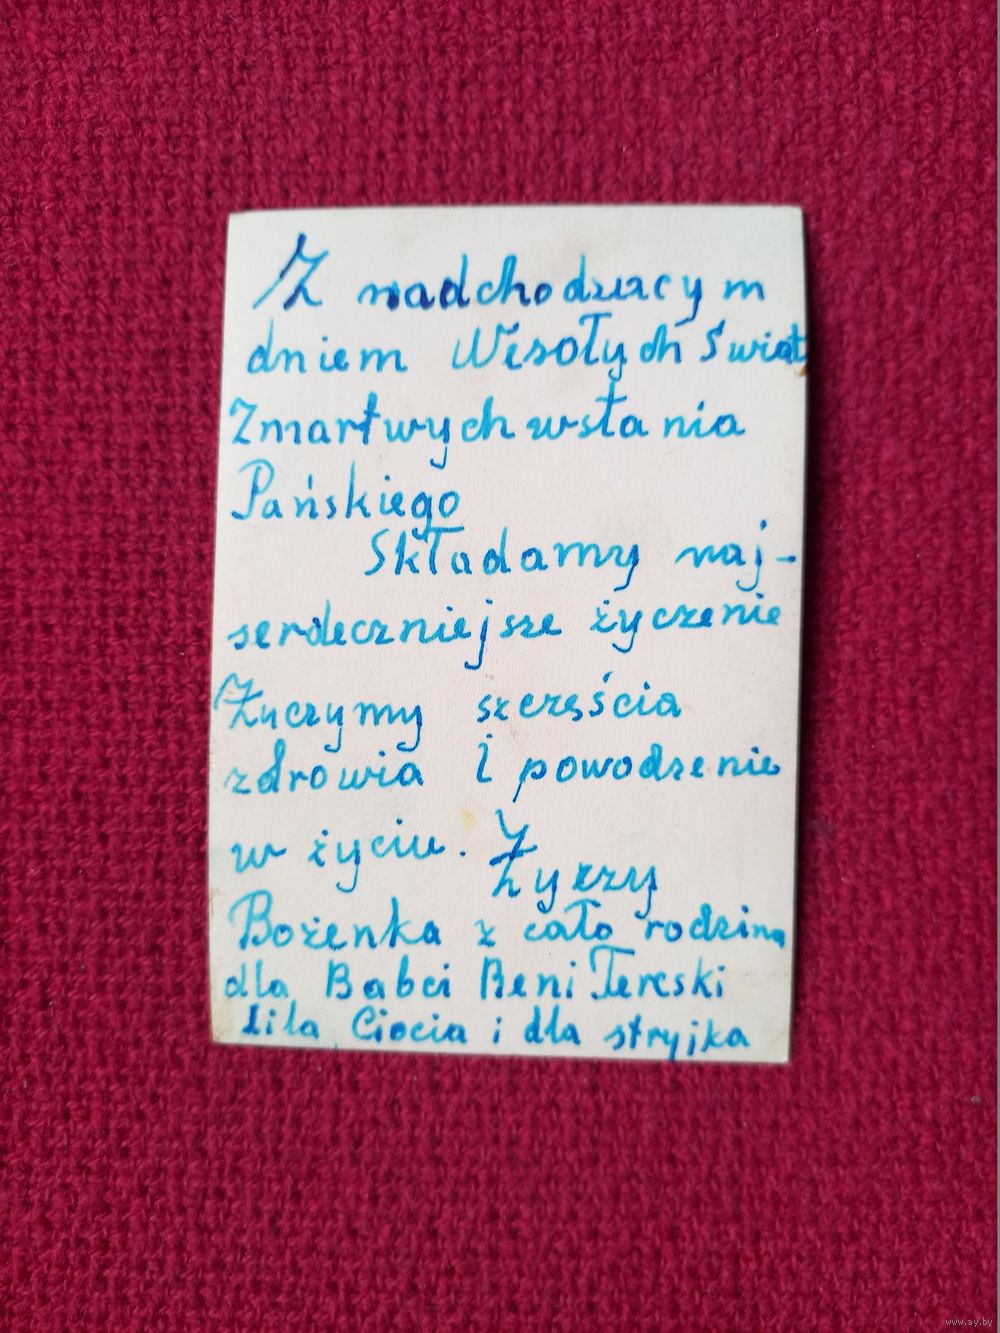 Z nadchodzącym
dniem Wesołych Świąt
Zmartwychwstania
Pańskiego
Składamy naj-
serdeczniejsze życzenie
Życzymy szczęścia
zdrowia i powodzenie
w życiu.
Życzy
Bożenka z cało rodziną
dla Babci Reni Tereski
Lila Ciocia i dla stryjka
www.ay.by